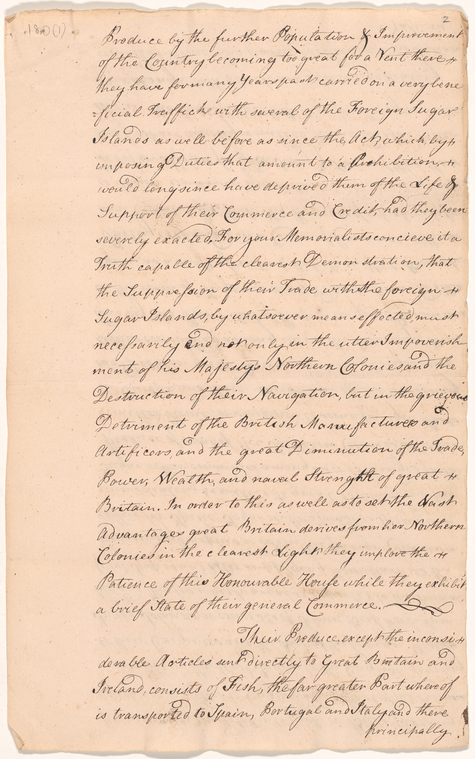 180(1)
2
Produce by the further Population & Improvement
of the Country becoming too great for a Vent there
they have for many Years past carried on a very bene
=ficial Traffick with several of the Foreign Sugar
Islands as well before as since the Act, which by
imposing Duties that amount to a Prohibition,
would long since have deprived them of the Life &
Support of their Commerce and Credit, had they been
severely exacted, For your Memorialists concieve it a
Truth capable of the clearest Demonstration, that
the Suppression of their Trade with the foreign
Sugar Islands, by whatsoever means effected must
necessarily end not only in the utter Impoverish
ment of his Majestys Northern Colonies and the
Destruction of their Navigation, but in the grievous
Detriment of the British Manufactures and
Artificers, and the great Diminution of the Trade,
Power, Wealth, and naval Strenght of great
Britain. In order to this as well as to set the Vast
Advantages great Britain derives from her Northern
Colonies in the clearest Light, they implore the
Patience of this Honourable House while they exhibit
a brief State of their general Commerce.
Their Produce, except the inconsi
derable Articles sent directly to Great Britain and
Ireland, consists of Fish, the far greater Part whereof
is transported to Spain, Portugal and Italy and there
principally